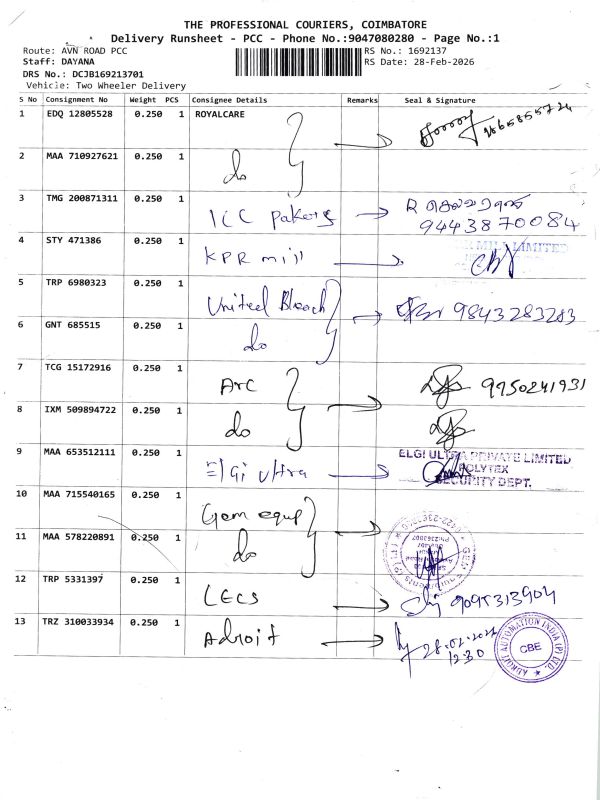 THE PROFESSIONAL COURIERS, COIMBATORE
Delivery Runsheet - PCC - Phone No.:9047080280 - Page No.:1
Route: AVN ROAD PCC
RS No.: 1692137
Staff: DAYANA
RS Date: 28-Feb-2026
DRS No.: DCJB169213701
Vehicle: Two Wheeler Delivery
S No Consignment No Weight PCS Consignee Details Remarks Seal & Signature
1 EDQ 12805528 0.250 1 ROYALCARE
2 MAA 710927621 0.250 1 do
3 TMG 200871311 0.250 1 ICC pakers R 9443870084
4 STY 471386 0.250 1 KPR mill MILL LIMITED
5 TRP 6980323 0.250 1 United Bleach 9843283283
6 GNT 685515 0.250 1 do
7 TCG 15172916 0.250 1 Arc 9750241931
8 IXM 509894722 0.250 1 do
9 MAA 653512111 0.250 1 Elgi ultra ELGI ULTRA PRIVATE LIMITED
POLYTEX
SECURITY DEPT.
10 MAA 715540165 0.250 1 Gem equp
11 MAA 578220891 0.250 1 do
12 TRP 5331397 0.250 1 LECS
13 TRZ 310033934 0.250 1 Adroit 28.02.2026
12:30
ADROIT AUTOMATION INDIA (P) LTD.
CBE